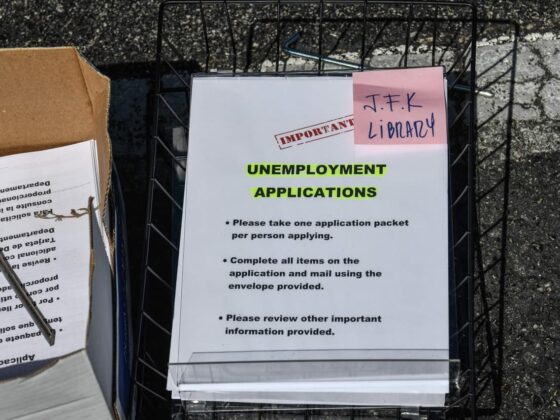 IMPORTANT
J.F.K
LIBRARY
UNEMPLOYMENT
APPLICATIONS
• Please take one application packet
per person applying.
• Complete all items on the
application and mail using the
envelope provided.
• Please review other important
information provided.
Aplicac
que soli
• Por
por
proporci
• Revise la
adicional
Tarjeta de Dé
Departamen
solicit
consulte la i
proporciona
Departamen